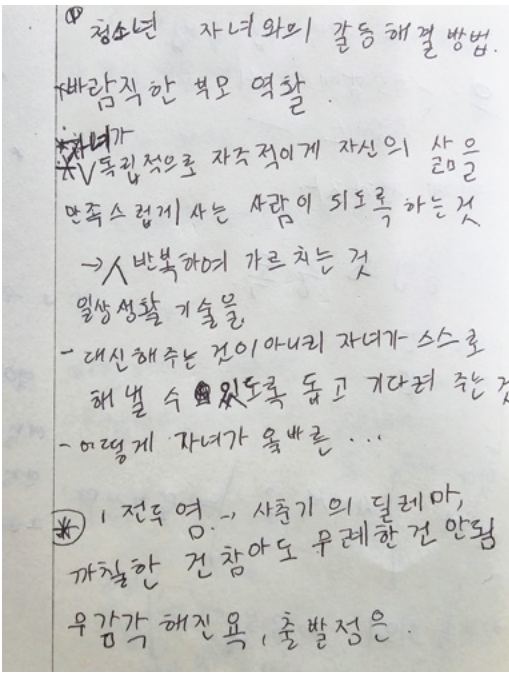 ① 청소년 자녀와의 갈등해결방법.
*바람직한 부모 역할.
자녀가
※∨독립적으로 자주적이게 자신의 삶을
만족스럽게 사는 사람이 되도록 하는 것
→人 반복하여 가르치는 것
일상생활 기술을
- 대신해주는 것이 아니리 자녀가 스스로
해낼 수 있도록 돕고 기다려 주는 것
- 어떻게 자녀가 올바른 ...
* , 전두엽 → 사춘기의 딜레마,
까칠한 건 참아도 무례한 건 안됨
무감각해진 욕, 출발점은.